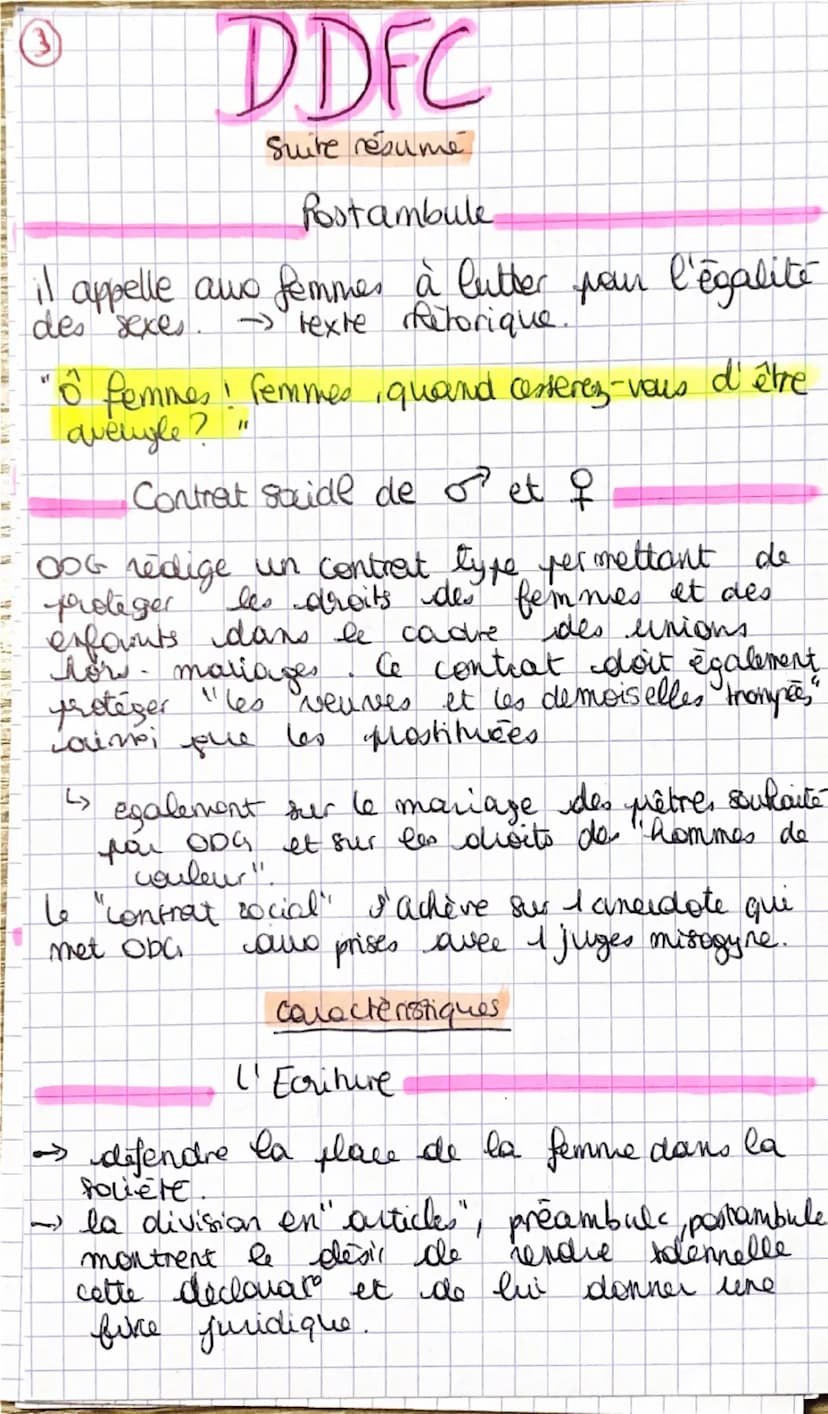 3
DDFC
Suite résumé
Postambule
il appelle aux femmes à lutter pour l'égalité
des sexes. → texte rhétorique.
"Ô femmes ! femmes, quand cesserez-vous d'être
aveugle ? "
Contrat social de ♂ et ♀
ODG rédige un contrat type permettant de
protéger les droits des femmes et des
enfants dans le cadre des unions
hors-mariages. Ce contrat doit également
protéger "les veuves et les demoiselles trompées"
ainsi que les prostituées
↳ egalement sur le mariage des prêtres souhaité
par ODG et sur les droits des "hommes de
couleur".
le "contrat social" s'achève sur 1 anecdote qui
met ODG aux prises avec 1 juges misogyne.
Caractèristiques
L'Ecriture
→ défendre la place de la femme dans la
société.
→ la division en "articles", préambule, postambule
montrent le désir de rendre solennelle
cette déclarar° et de lui donner une
force juridique.